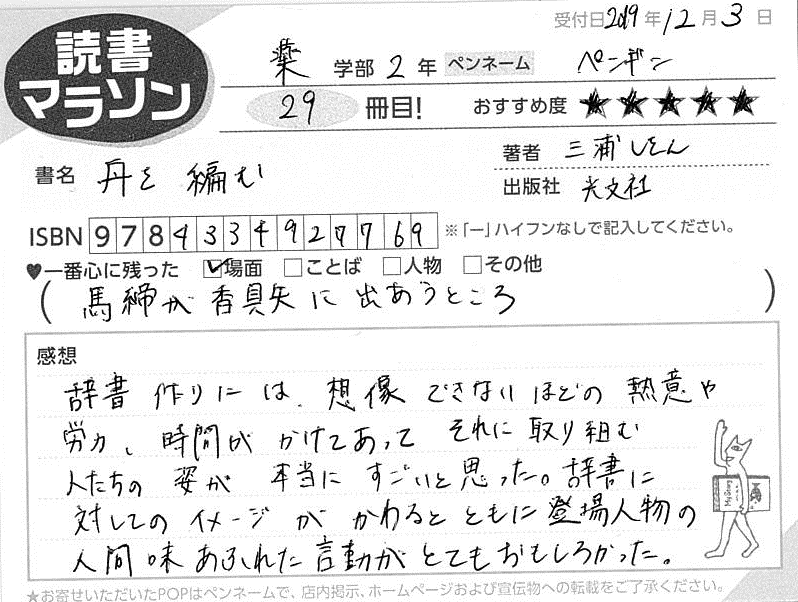 受付日2019年12月3日
読書
マラソン
薬 学部 2 年 ペンネーム ペンギン
29 冊目! おすすめ度 ★★★★★
書名 舟を編む
著者 三浦しをん
出版社 光文社
ISBN 9784334927769 ※「ー」ハイフンなしで記入してください。
♥一番心に残った ☑場面 □ことば □人物 □その他
(馬締が香具矢に出あうところ)
感想
辞書作りには、想像できないほどの熱意や
労力、時間がかけてあって それに取り組む
人たちの姿が本当にすごいと思った。辞書に
対してのイメージがかわるとともに登場人物の
人間味あふれた言動がとてもおもしろかった。
★お寄せいただいたPOPはペンネームで、店内掲示、ホームページおよび宣伝物への転載をご了承ください。